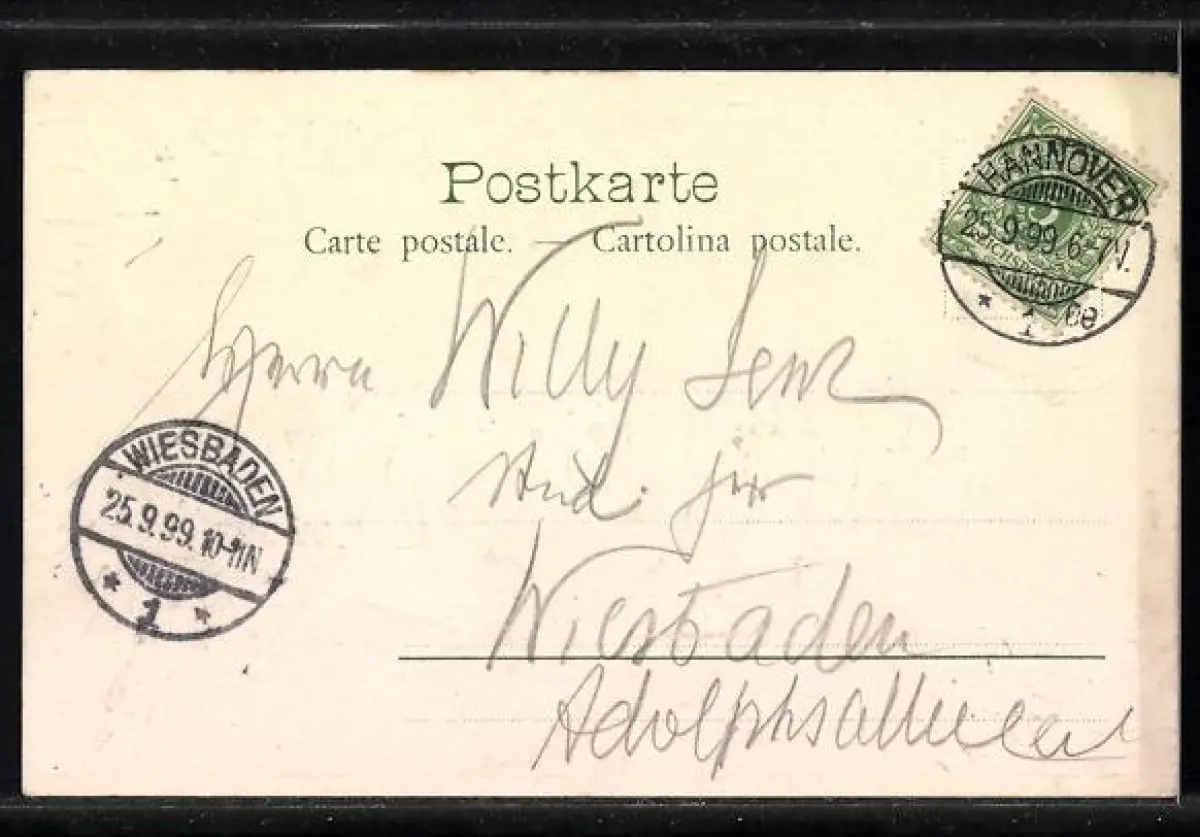 Postkarte
Carte postale. — Cartolina postale.
HANNOVER
25.9.99.6-7V.
* 1 ce
Herrn Willy Lenz
stud. jur
Wiesbaden
Adolphsallee
WIESBADEN
25.9.99.10-11N
* 1 *